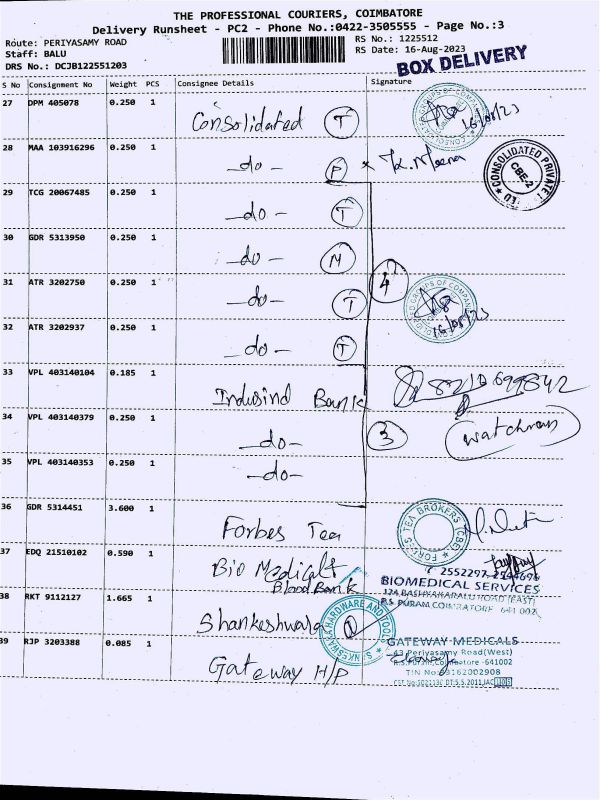 THE PROFESSIONAL COURIERS, COIMBATORE
Delivery Runsheet - PC2 - Phone No.:0422-3505555 - Page No.:3
Route: PERIYASAMY ROAD
RS No.: 1225512
Staff: BALU
RS Date: 16-Aug-2023
DRS No.: DCJB122551203
BOX DELIVERY
S No Consignment No Weight PCS Consignee Details Signature
27 DPM 405078 0.250 1 Consolidated T
16/08/23
28 MAA 103916296 0.250 1 -do- P K. Meena
CONSOLIDATED PRIVATE
CBE-2
29 TCG 20067485 0.250 1 -do- T
30 GDR 5313950 0.250 1 -do- M
4
31 ATR 3202750 0.250 1 -do- T
32 ATR 3202937 0.250 1 -do- T
16/08/23
33 VPL 403140104 0.185 1 Indusind Bank
34 VPL 403140379 0.250 1 -do- 3 watchman
35 VPL 403140353 0.250 1 -do-
36 GDR 5314451 3.600 1 Forbes Tea
FORBES TEA BROKERS (CBE)
37 EDQ 21510102 0.590 1 Bio Medicals
Blood Bank
2552297
BIOMEDICAL SERVICES
R.S. PURAM COIMBATORE 641 002
38 RKT 9112127 1.665 1 Shankeshwara
HARDWARE AND TOOLS
39 RJP 3203388 0.085 1 Gateway H/P
GATEWAY MEDICALS
43 Periyasamy Road(West)
R.S.Puram, Coimbatore -641002